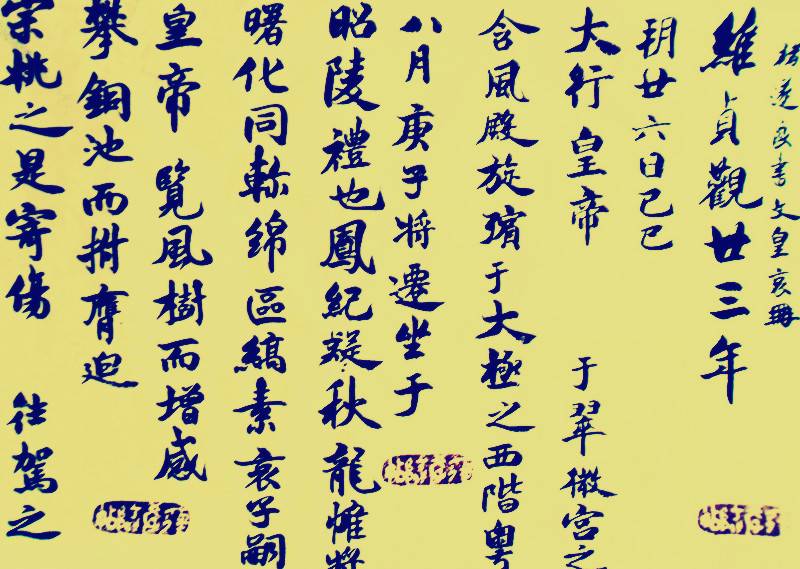 褚遂良書文皇哀冊
維貞觀廿三年
朔廿六日己巳
大行皇帝 于翠微宮之
含風殿旋殯于大極之西階粵
八月庚子将遷坐于
昭陵禮也鳳紀凝秋龍帷將
曙化同軫綿區縞素哀子嗣
皇帝覽風樹而增感
攀銅池而拊膺迫
宗祧之是寄傷 往駕之